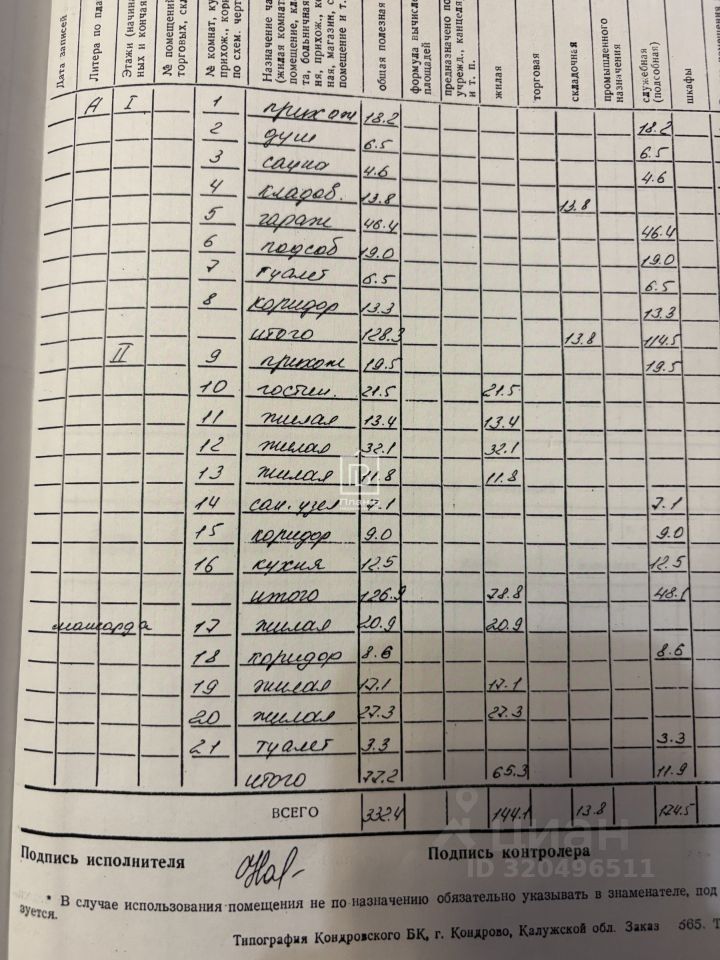 Дата записей
Литера по пла
Этажи (начина
ных и кончая
№ помещений
торговых, ск
№ комнат, ку
прихож., кор
по схем. черт
Назначение ча
(жилая комнат
помещение, кл
та, больничная
ня, прихож., к
ная, магазин, с
помещение и т.
общая полезная
формула вычисле
площадей
предназначено по
учрежд., канцеля
и т. п.
жилая
торговая
складочная
промышленного
назначения
служебная
(подсобная)
шкафы
А I 1 прихож 18.2 18.2
2 душ 6.5 6.5
3 сауна 4.6 4.6
4 кладов. 13.8 13.8
5 гараж 46.4 46.4
6 подсоб 19.0 19.0
7 туалет 6.5 6.5
8 коридор 13.3 13.3
итого 128.3 13.8 114.5
II 9 прихож 19.5 19.5
10 гостин. 21.5 21.5
11 жилая 13.4 13.4
12 жилая 32.1 32.1
13 жилая 11.8 11.8
14 сан. узел 7.1 7.1
15 коридор 9.0 9.0
16 кухня 12.5 12.5
итого 126.9 78.8 48.1
мансарда 17 жилая 20.9 20.9
18 коридор 8.6 8.6
19 жилая 17.1 17.1
20 жилая 27.3 27.3
21 туалет 3.3 3.3
итого 77.2 65.3 11.9
ВСЕГО 332.4 144.1 13.8 174.5
циан
ID 320496511
Подпись исполнителя Подпись контролера
* В случае использования помещения не по назначению обязательно указывать в знаменателе, под
зуется.
Типография Кондровского БК, г. Кондрово, Калужской обл. Заказ 565. Т